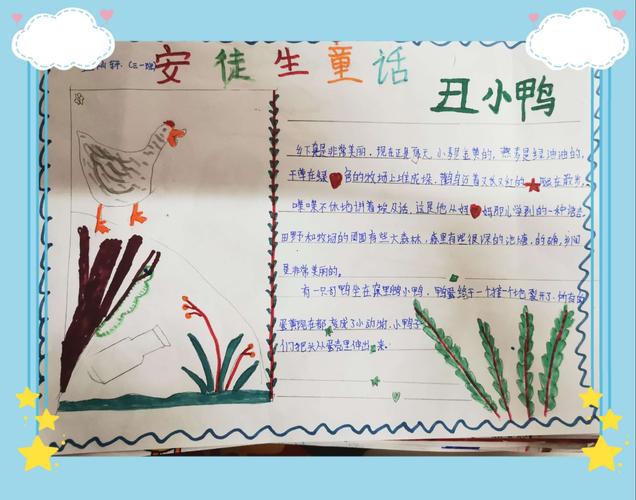 (三一班)
安徒生童话
丑小鸭
乡下真是非常美丽。现在正是夏天,小麦是金黄的,燕麦是绿油油的,
干草在绿色的牧场上堆成垛,鹳鸟迈着又长又红的 腿在散步,
喋喋不休地讲着埃及话。这是他从妈妈那儿学到的一种语言。
田野和牧场的周围有些大森林,森里有些很深的池塘。的确,乡间
是非常美丽的。
有一只母鸭坐在窠里 小鸭。鸭蛋终于一个接一个地裂开了,所有的
蛋黄现在都变成了小动物,小鸭子
们把头从蛋壳里伸出 来。